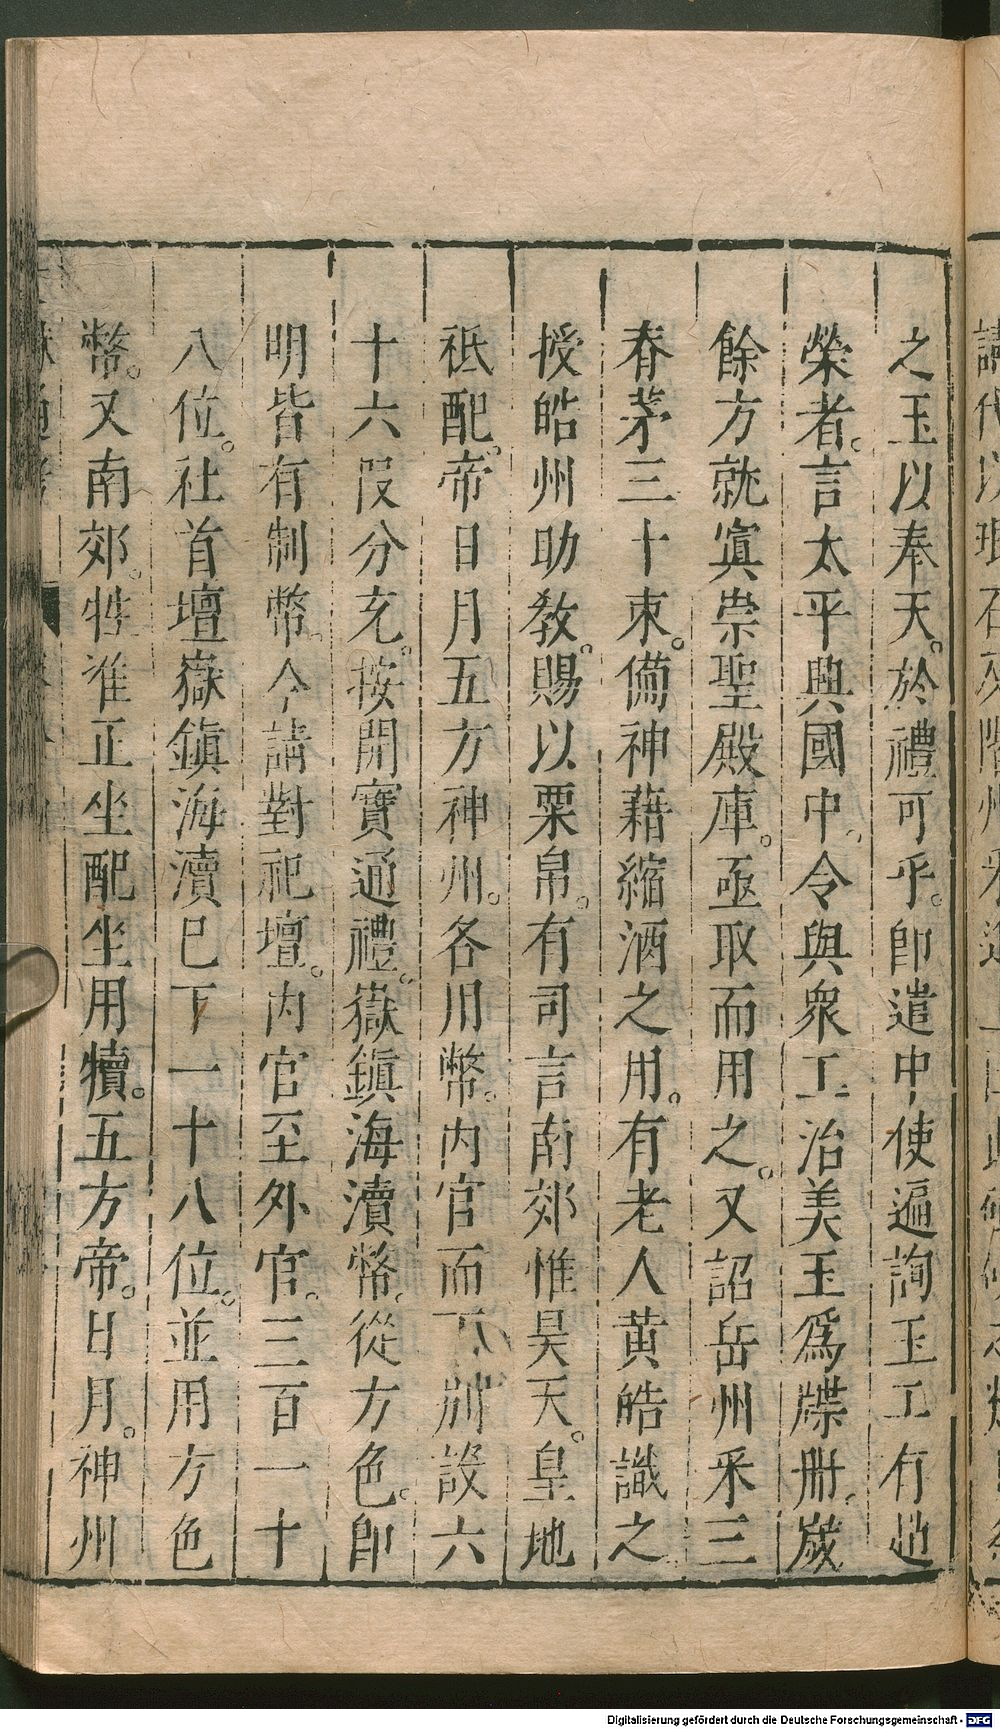 之玉以奉天。於禮可乎。卽遣中使遍詢玉工有趙
榮者。言太平興國中。令與衆工治美玉爲牒冊。歲
餘方就寘崇聖殿庫。亟取而用之。又詔岳州釆三
春茅三十束。備神藉縮酒之用。有老人黄皓識之
授皓州助敎。賜以粟帛。有司言南郊惟昊天。皇地
祗配。帝日月五方神州。各用幣。内官而下。别設六
十六段分充。按開寶通禮。嶽鎭海瀆幣。從方色。卽
明皆有制幣。今請對祀壇。内官至外官。三百一十
八位。社首壇嶽鎭海瀆巳下一十八位。並用方色
幣。又南郊。牲准正坐配坐用犢。五方帝。日月。神州
Digitalisierung gefördert durch die Deutsche Forschungsgemeinschaft - DFG